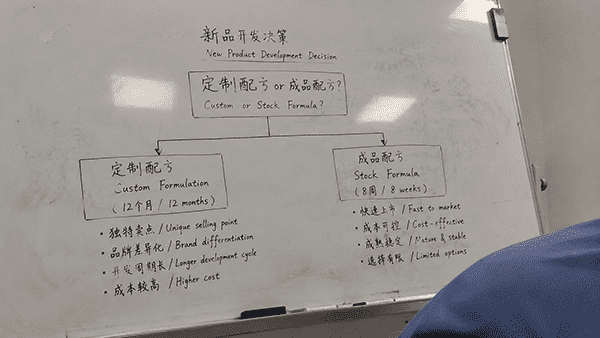 新品开发决策
New Product Development Decision
定制配方 or 成品配方?
Custom or Stock Formula?
定制配方
Custom Formulation
(12个月 / 12 months)
• 独特卖点 / Unique selling point
• 品牌差异化 / Brand differentiation
• 开发周期长 / Longer development cycle
• 成本较高 / Higher cost
成品配方
Stock Formula
(8周 / 8 weeks)
• 快速上市 / Fast to market
• 成本可控 / Cost-effective
• 成熟稳定 / Mature & stable
• 选择有限 / Limited options